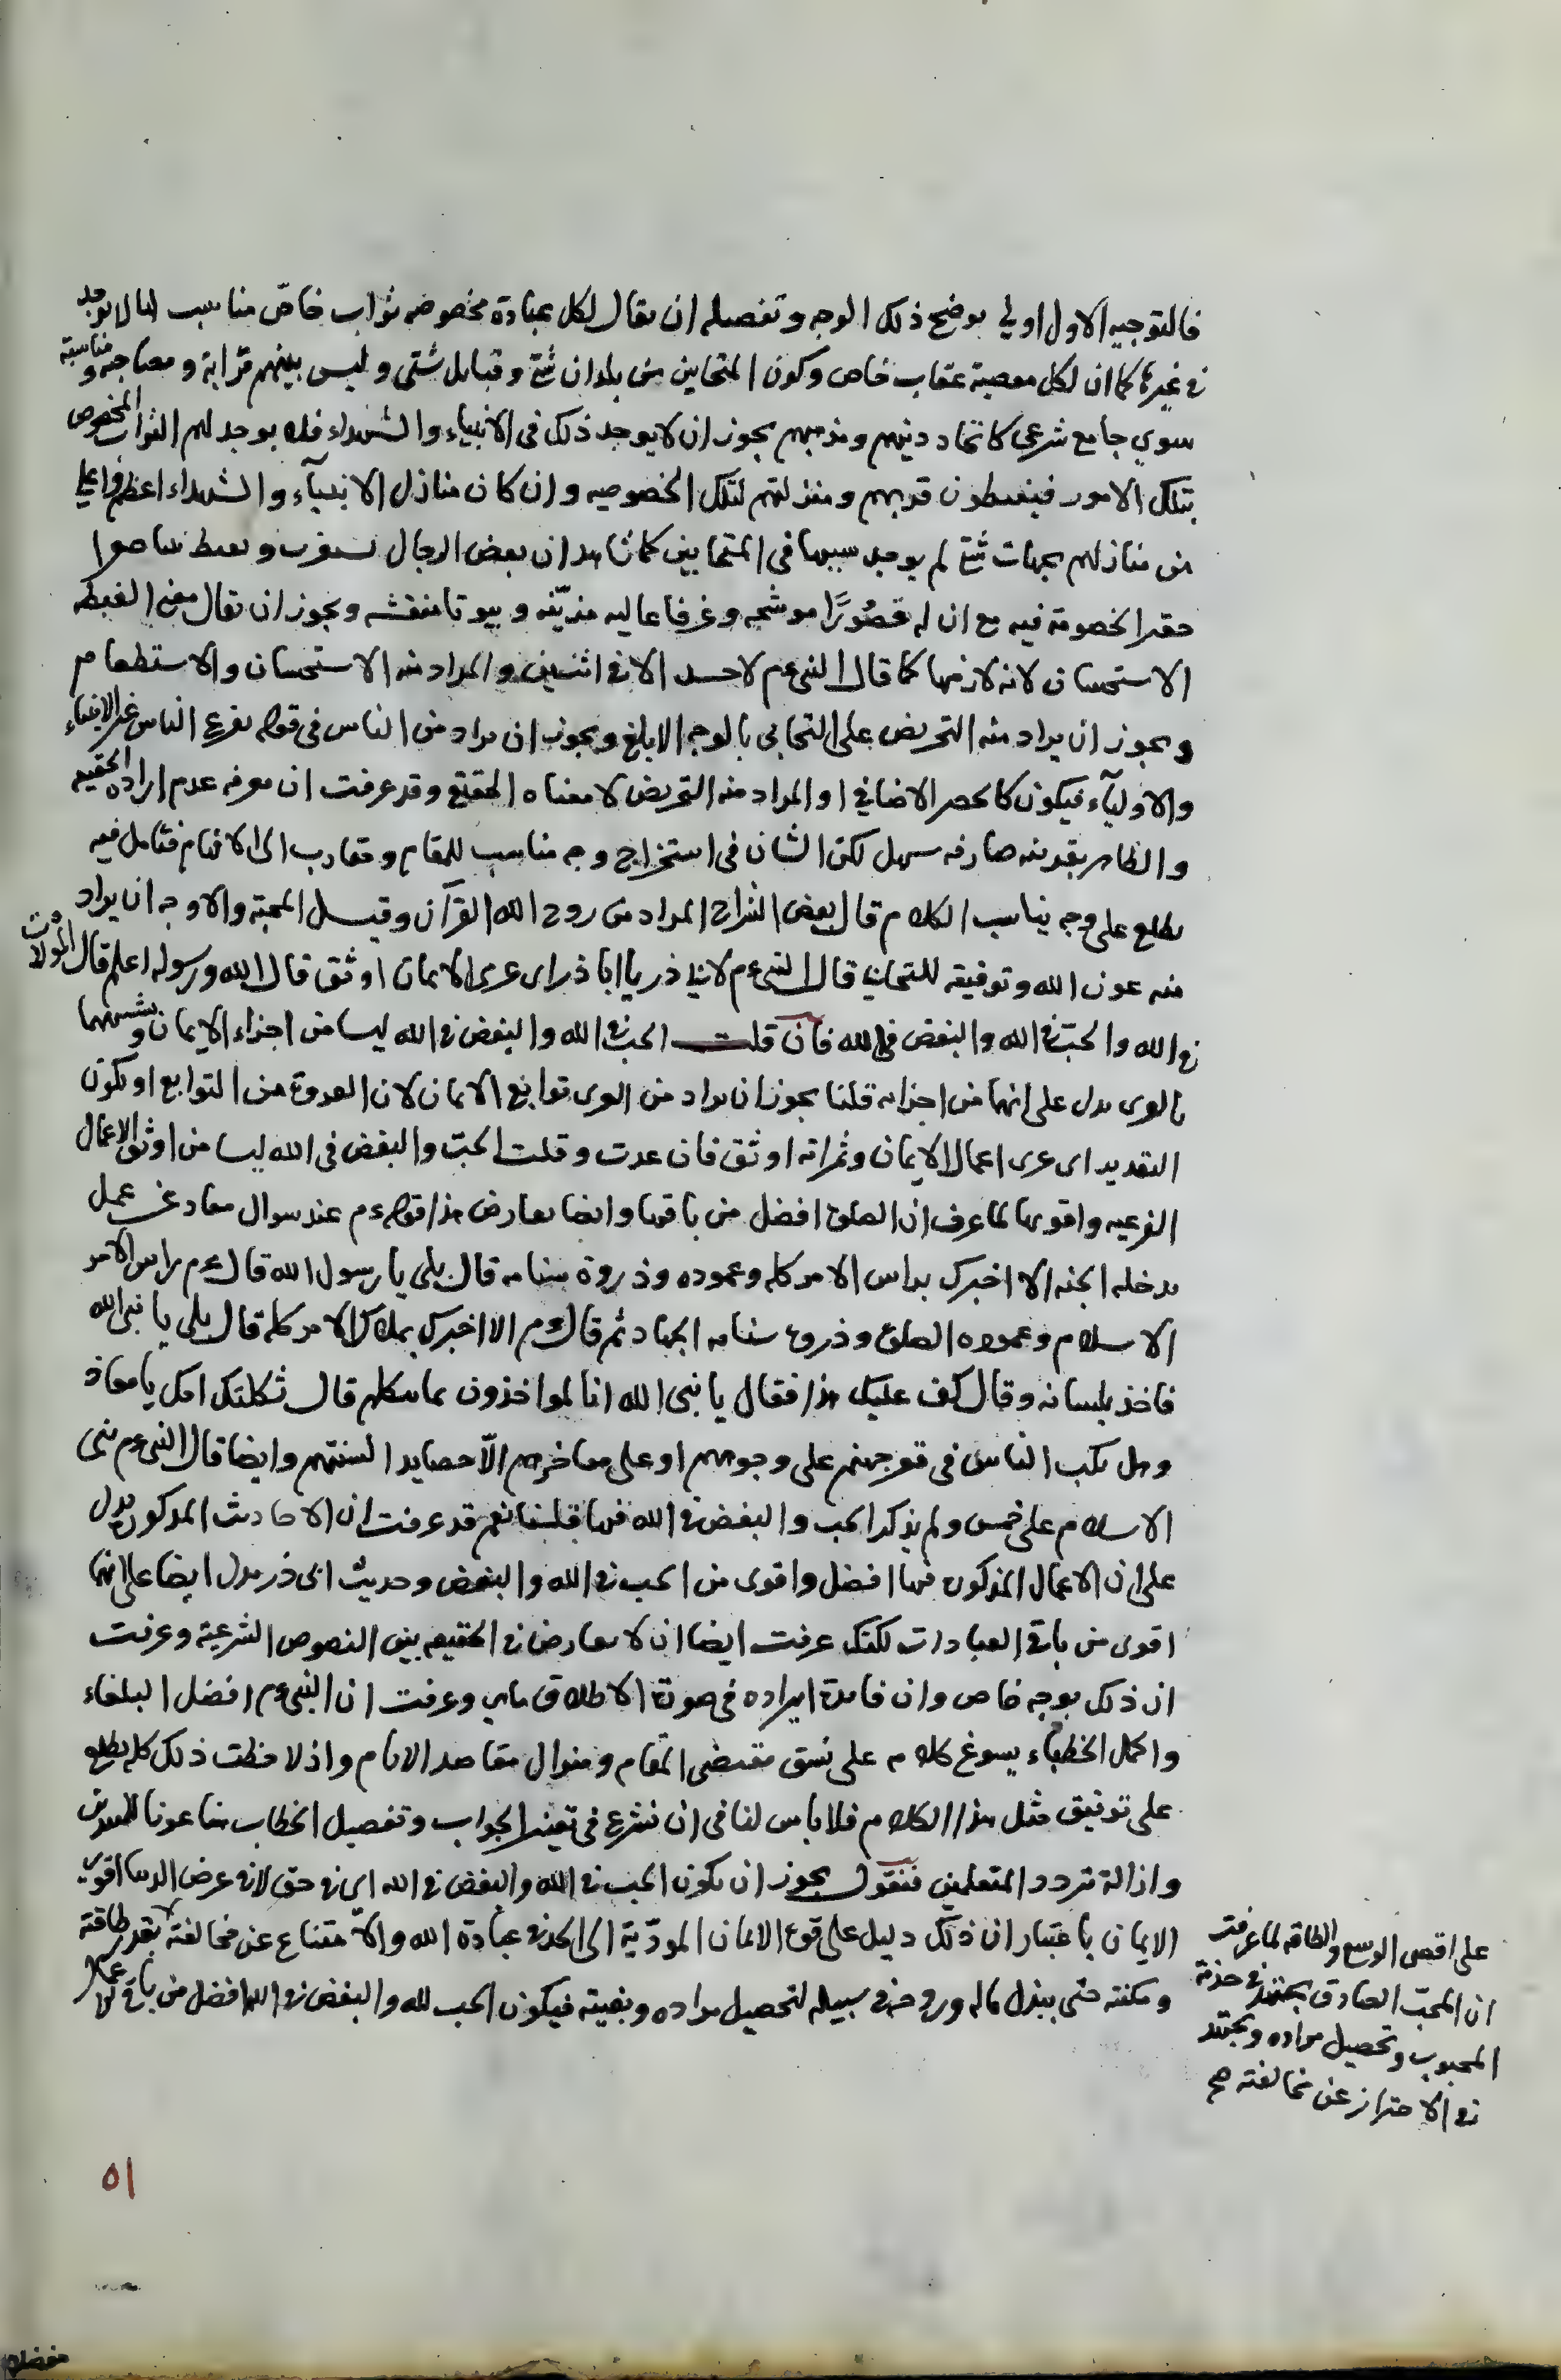 فالتوجيه الاول اولي يوضح ذلك الوجه وتفصيله ان يقال لكل عبادة مخصوصه ثواب خاص مناسب لها لا يوجد
في غيرها كما ان لكل معصية عقاب خاص وكون المتحابين من بلدان شتى وقبايل شتى وليس بينهم قرابة و مصاحبة ومناسبة
سوى جامع شرعى كاتحاد دينهم ومذهبهم يجوز ان لا يوجد ذلك في الانبياء والشهداء فلا يوجد لهم الثواب المخصوص
بتلك الامور فيغبطون قربهم ومنزلتهم لتلك الخصوصيه وان كان منازل الانبيآء والشهداء اعظم واعلى
من منازلهم بجهات شتى لم يوجد سببها في المتحابين كما نشاهد ان بعض الرجال ويغبط
حقيرا لخصوصة فيه مع ان له قصورًا موشحه وغرفا عاليه مزيّنه وبيوتا منقشه ويجوز ان يقال معنى الغبطه
الاستحسان لانه لازمها كما قال النبي عم لا حسد الا في اثنين والمراد منه الاستحسان والاستطعام
ويجوز ان يراد منه التحريض على التحابي بالوجه الابلغ ويجوز ان يراد من الناس في قوله يفزع الناس غير الانبياء
والاوليآء فيكون كالحصر الاضافي او المراد منه التحريض لا معناه الحقيقى وقد عرفت ان معرفه عدم اراده الحقيقه
والظاهر بقرينه صارفه سهل لكن الشان في استخراج وجه مناسب للمقام ومقارب الى الافهام فتامل فيه
يطلع على وجه يناسب الكلام قال بعض الشراح المراد من روح الله القرآن وقيل المحبة والاوجه ان يراد
منه عون الله وتوفيقه للتحابي قال النبي عم لابي ذر يا ابا ذر اى عرى الايمان اوثق قال الله ورسوله اعلم قال الموالات
في الله والحبّ في الله والبغض في الله فان قلت الحب في الله والبغض في الله ليسا من اجزاء الايمان وتشبيههما
بالعرى يدل على انهما من اجزائه قلنا يجوز ان يراد من العرى توابع الايمان لان العروة من التوابع او يكون
التقدير اى عرى اعمال الايمان وثمراته اوثق فان عدت وقلت الحبّ والبغض في الله ليسا من اوثق الاعمال
الفرعيه واقويها لما عرف ان الصلوة افضل من باقيها وايضا يعارض هذا قوله عم عند سوال معاذ عن عمل
يدخله الجنه الا اخبرك براس الامر كله وعموده وذروة سنامه قال بلى يا رسول الله قال عم راس الامر
الاسلام وعموده الصلوة وذروة سنامه الجهاد ثم قال عم الا اخبرك بملاك الامر كله قال بلى يا نبي الله
فاخذ بلسانه وقال كف عليك هذا فقال يا نبى الله انا لمواخذون بما نتكلم قال ثكلتك امك يا معاذ
وهل يكب الناس في جهنم على وجوههم او على مناخرهم الّا حصايد السنتهم وايضا قال النبي عم بنى
الاسلام على خمس ولم يذكر الحب والبغض في الله فيها قلنا نعم قد عرفت ان الاحاديث المذكورة يدل
على ان الاعمال المذكورة فيها افضل واقوى من الحب في الله والبغض وحديث ابى ذر يدل ايضا على انهما
اقوى من باقي العبادات لكنك عرفت ايضا ان لا تعارض في الحقيقه بين النصوص الشرعية وعرفت
ان ذلك بوجه خاص وان فايدة ايراده في صورة الاطلاق وعرفت ان النبي عم افضل البلغاء
واكمل الخطباء يسوغ كلامه على نسق مقتضى المقام ومنوال مقاصد الانام واذ لاحظت ذلك كله يطلع
على توفيق مثل هذا الكلام فلا باس لنا في ان نشرع في تعيين الجواب وتفصيل الخطاب
وازالة تردد المتعلمين فنقول يجوز ان يكون الحب في الله والبغض في الله اى في حق لا في عرض الدنيا اقوى
الايمان باعتبار ان ذلك دليل على قوة الايمان المودّية الى الجد في عبادة الله والامتناع عن مخالفته بقدر طاقته
ومكنته حتى يبذل ماله وروحه في سبيله لتحصيل مراده وبغيته فيكون الحب لله والبغض في الله افضل من باقي
على اقصى الوسع والطاقه لما عرفت
ان المحبّ الصادق يجتهد في خدمة
المحبوب وتحصيل مراده ويجتهد
في الاحتراز عن مخالفته صح
٥١